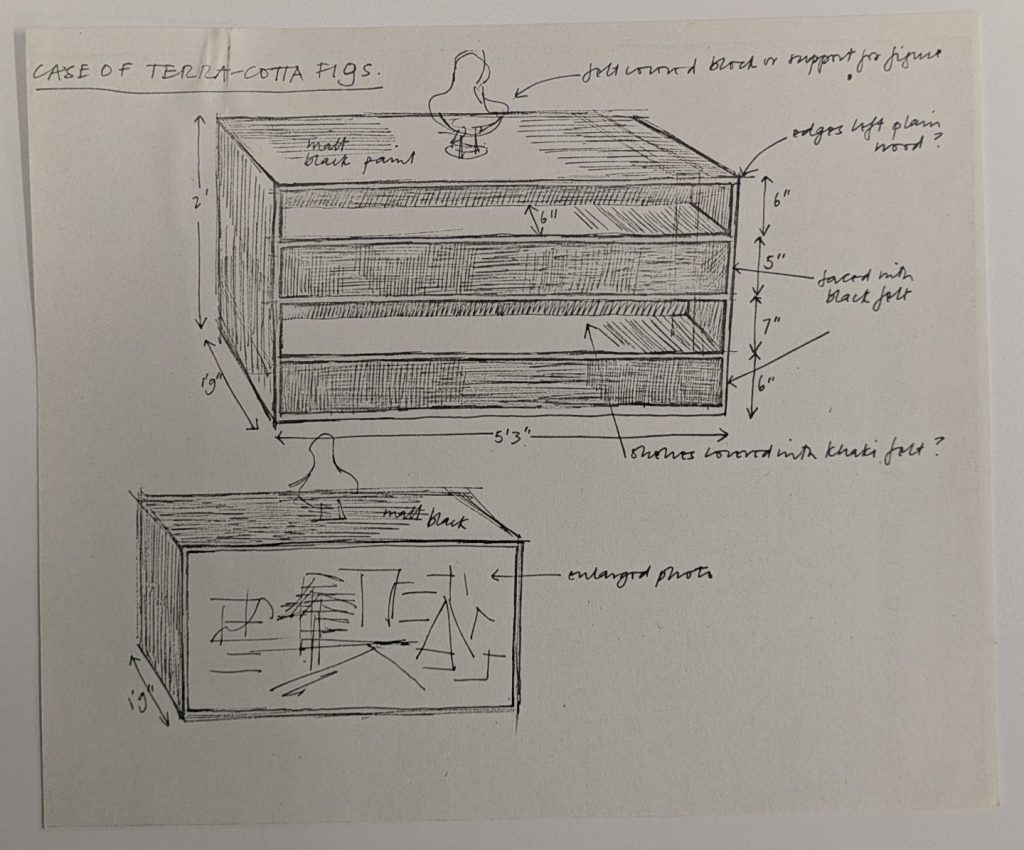 CASE OF TERRA-COTTA FIGS.
felt covered block or support for figure
edges left plain
wood?
matt
black paint
2'
6"
6"
5"
faced with
black felt
7"
6"
1'9"
5'3"
shelves covered with khaki felt?
matt black
enlarged photo
1'9"